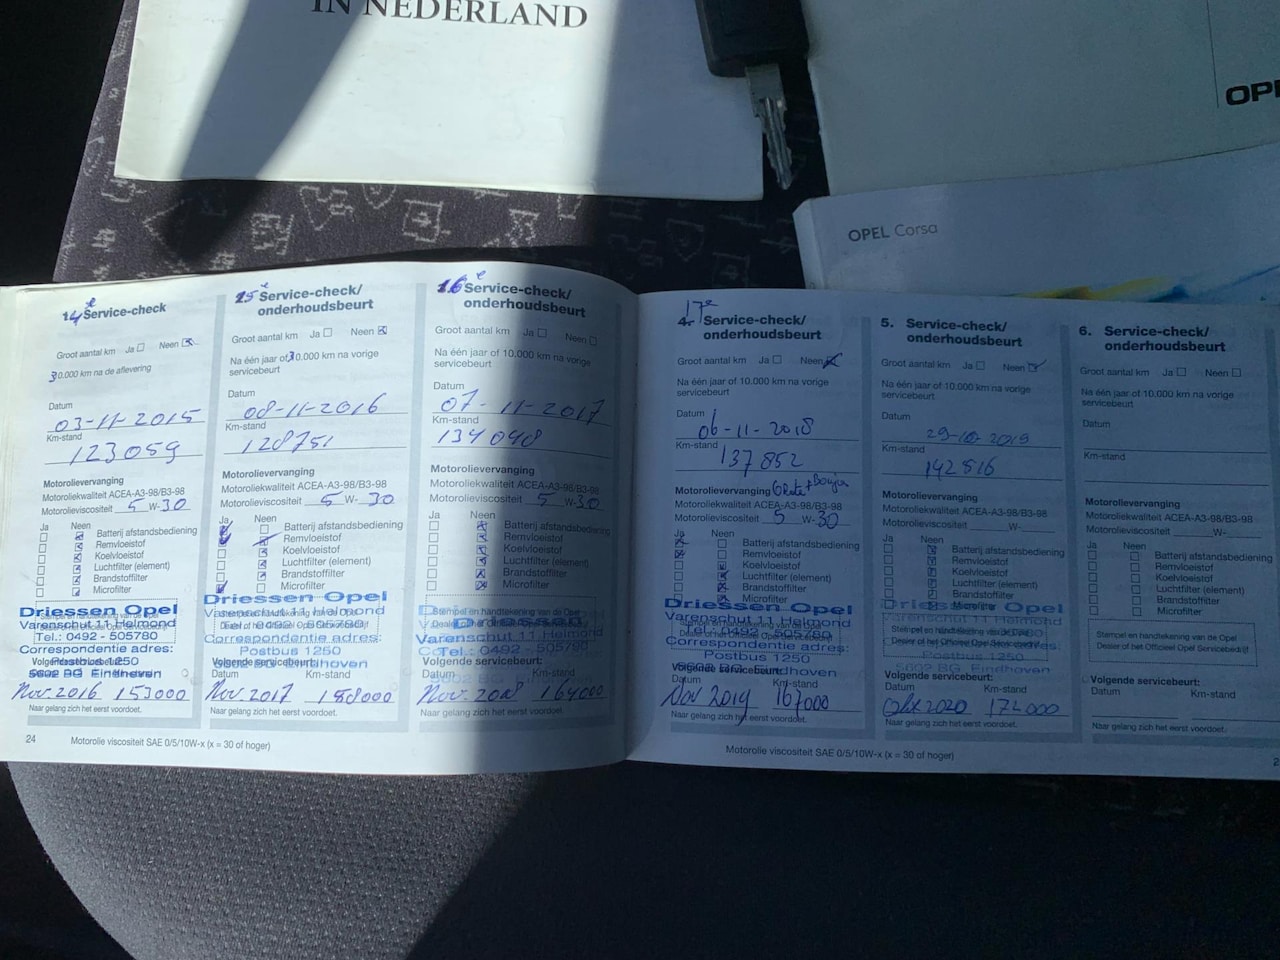 IN NEDERLAND
OPEL Corsa
14e Service-check
Groot aantal km Ja Neen
30.000 km na de aflevering
Datum
03-11-2015
Km-stand
123059
Motorolievervanging
Motoroliekwaliteit ACEA-A3-98/B3-98
Motorolieviscositeit 5 W-30
Ja Neen
Batterij afstandsbediening
Remvloeistof
Koelvloeistof
Luchtfilter (element)
Brandstoffilter
Microfilter
Driessen Opel
Varenschut 11 Helmond
Tel.: 0492 - 505780
Correspondentie adres:
Postbus 1250
5602 BG Eindhoven
Volgende servicebeurt:
Nov 2016 153000
Naar gelang zich het eerst voordoet.
24
Motorolie viscositeit SAE 0/5/10W-x (x = 30 of hoger)
15e Service-check/
onderhoudsbeurt
Groot aantal km Ja Neen
Na één jaar of 30.000 km na vorige
servicebeurt
Datum
08-11-2016
Km-stand
128751
Motorolievervanging
Motoroliekwaliteit ACEA-A3-98/B3-98
Motorolieviscositeit 5 W-30
Ja Neen
Batterij afstandsbediening
Remvloeistof
Koelvloeistof
Luchtfilter (element)
Brandstoffilter
Microfilter
Driessen Opel
Varenschut 11 Helmond
Correspondentie adres:
Postbus 1250
Volgende servicebeurt:
Datum Km-stand
Nov 2017 158000
Naar gelang zich het eerst voordoet.
16e Service-check/
onderhoudsbeurt
Groot aantal km Ja Neen
Na één jaar of 10.000 km na vorige
servicebeurt
Datum
07-11-2017
Km-stand
134048
Motorolievervanging
Motoroliekwaliteit ACEA-A3-98/B3-98
Motorolieviscositeit 5 W-30
Ja Neen
Batterij afstandsbediening
Remvloeistof
Koelvloeistof
Luchtfilter (element)
Brandstoffilter
Microfilter
Stempel en handtekening van de Opel
Varenschut 11 Helmond
Tel.: 0492 - 505780
Volgende servicebeurt:
Datum Km-stand
Nov 2018 164000
Naar gelang zich het eerst voordoet.
17e
4. Service-check/
onderhoudsbeurt
Groot aantal km Ja Neen
Na één jaar of 10.000 km na vorige
servicebeurt
Datum
06-11-2018
Km-stand
137852
Motorolievervanging
Motoroliekwaliteit ACEA-A3-98/B3-98
Motorolieviscositeit 5 W-30
Ja Neen
Batterij afstandsbediening
Remvloeistof
Koelvloeistof
Luchtfilter (element)
Brandstoffilter
Microfilter
Driessen Opel
Varenschut 11 Helmond
Correspondentie adres:
Postbus 1250
Volgende servicebeurt:
Datum Km-stand
Nov 2019 167000
Naar gelang zich het eerst voordoet.
Motorolie viscositeit SAE 0/5/10W-x (x = 30 of hoger)
5. Service-check/
onderhoudsbeurt
Groot aantal km Ja Neen
Na één jaar of 10.000 km na vorige
servicebeurt
Datum
29-10-2019
Km-stand
142516
Motorolievervanging
Motoroliekwaliteit ACEA-A3-98/B3-98
Motorolieviscositeit W-
Ja Neen
Batterij afstandsbediening
Remvloeistof
Koelvloeistof
Luchtfilter (element)
Brandstoffilter
Microfilter
Driessen Opel
Varenschut 11 Helmond
Postbus 1250
5602 BG Eindhoven
Volgende servicebeurt:
Datum Km-stand
2020 172000
Naar gelang zich het eerst voordoet.
6. Service-check/
onderhoudsbeurt
Groot aantal km Ja Neen
Na één jaar of 10.000 km na vorige
servicebeurt
Datum
Km-stand
Motorolievervanging
Motoroliekwaliteit ACEA-A3-98/B3-98
Motorolieviscositeit W-
Ja Neen
Batterij afstandsbediening
Remvloeistof
Koelvloeistof
Luchtfilter (element)
Brandstoffilter
Microfilter
Stempel en handtekening van de Opel
Dealer of het Officieel Opel Servicebedrijf
Volgende servicebeurt:
Datum Km-stand
Naar gelang zich het eerst voordoet.